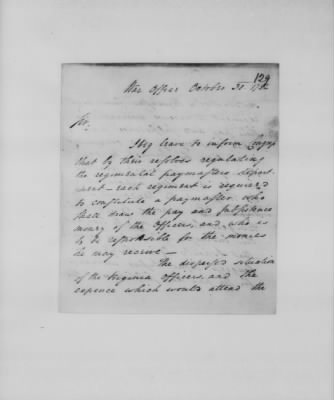 129
War Office October 31. 1782
Sir,
I beg leave to inform Congress
that by their resolves regulating
the regimental paymasters depart-
ment – each regiment is required
to constitute a paymaster who
shall draw the pay and subsistence
money of the officers, and who is
to be responsible for the monies
he may receive –
The dispersed situation
of the Virginia officers, and the
expence which would attend the